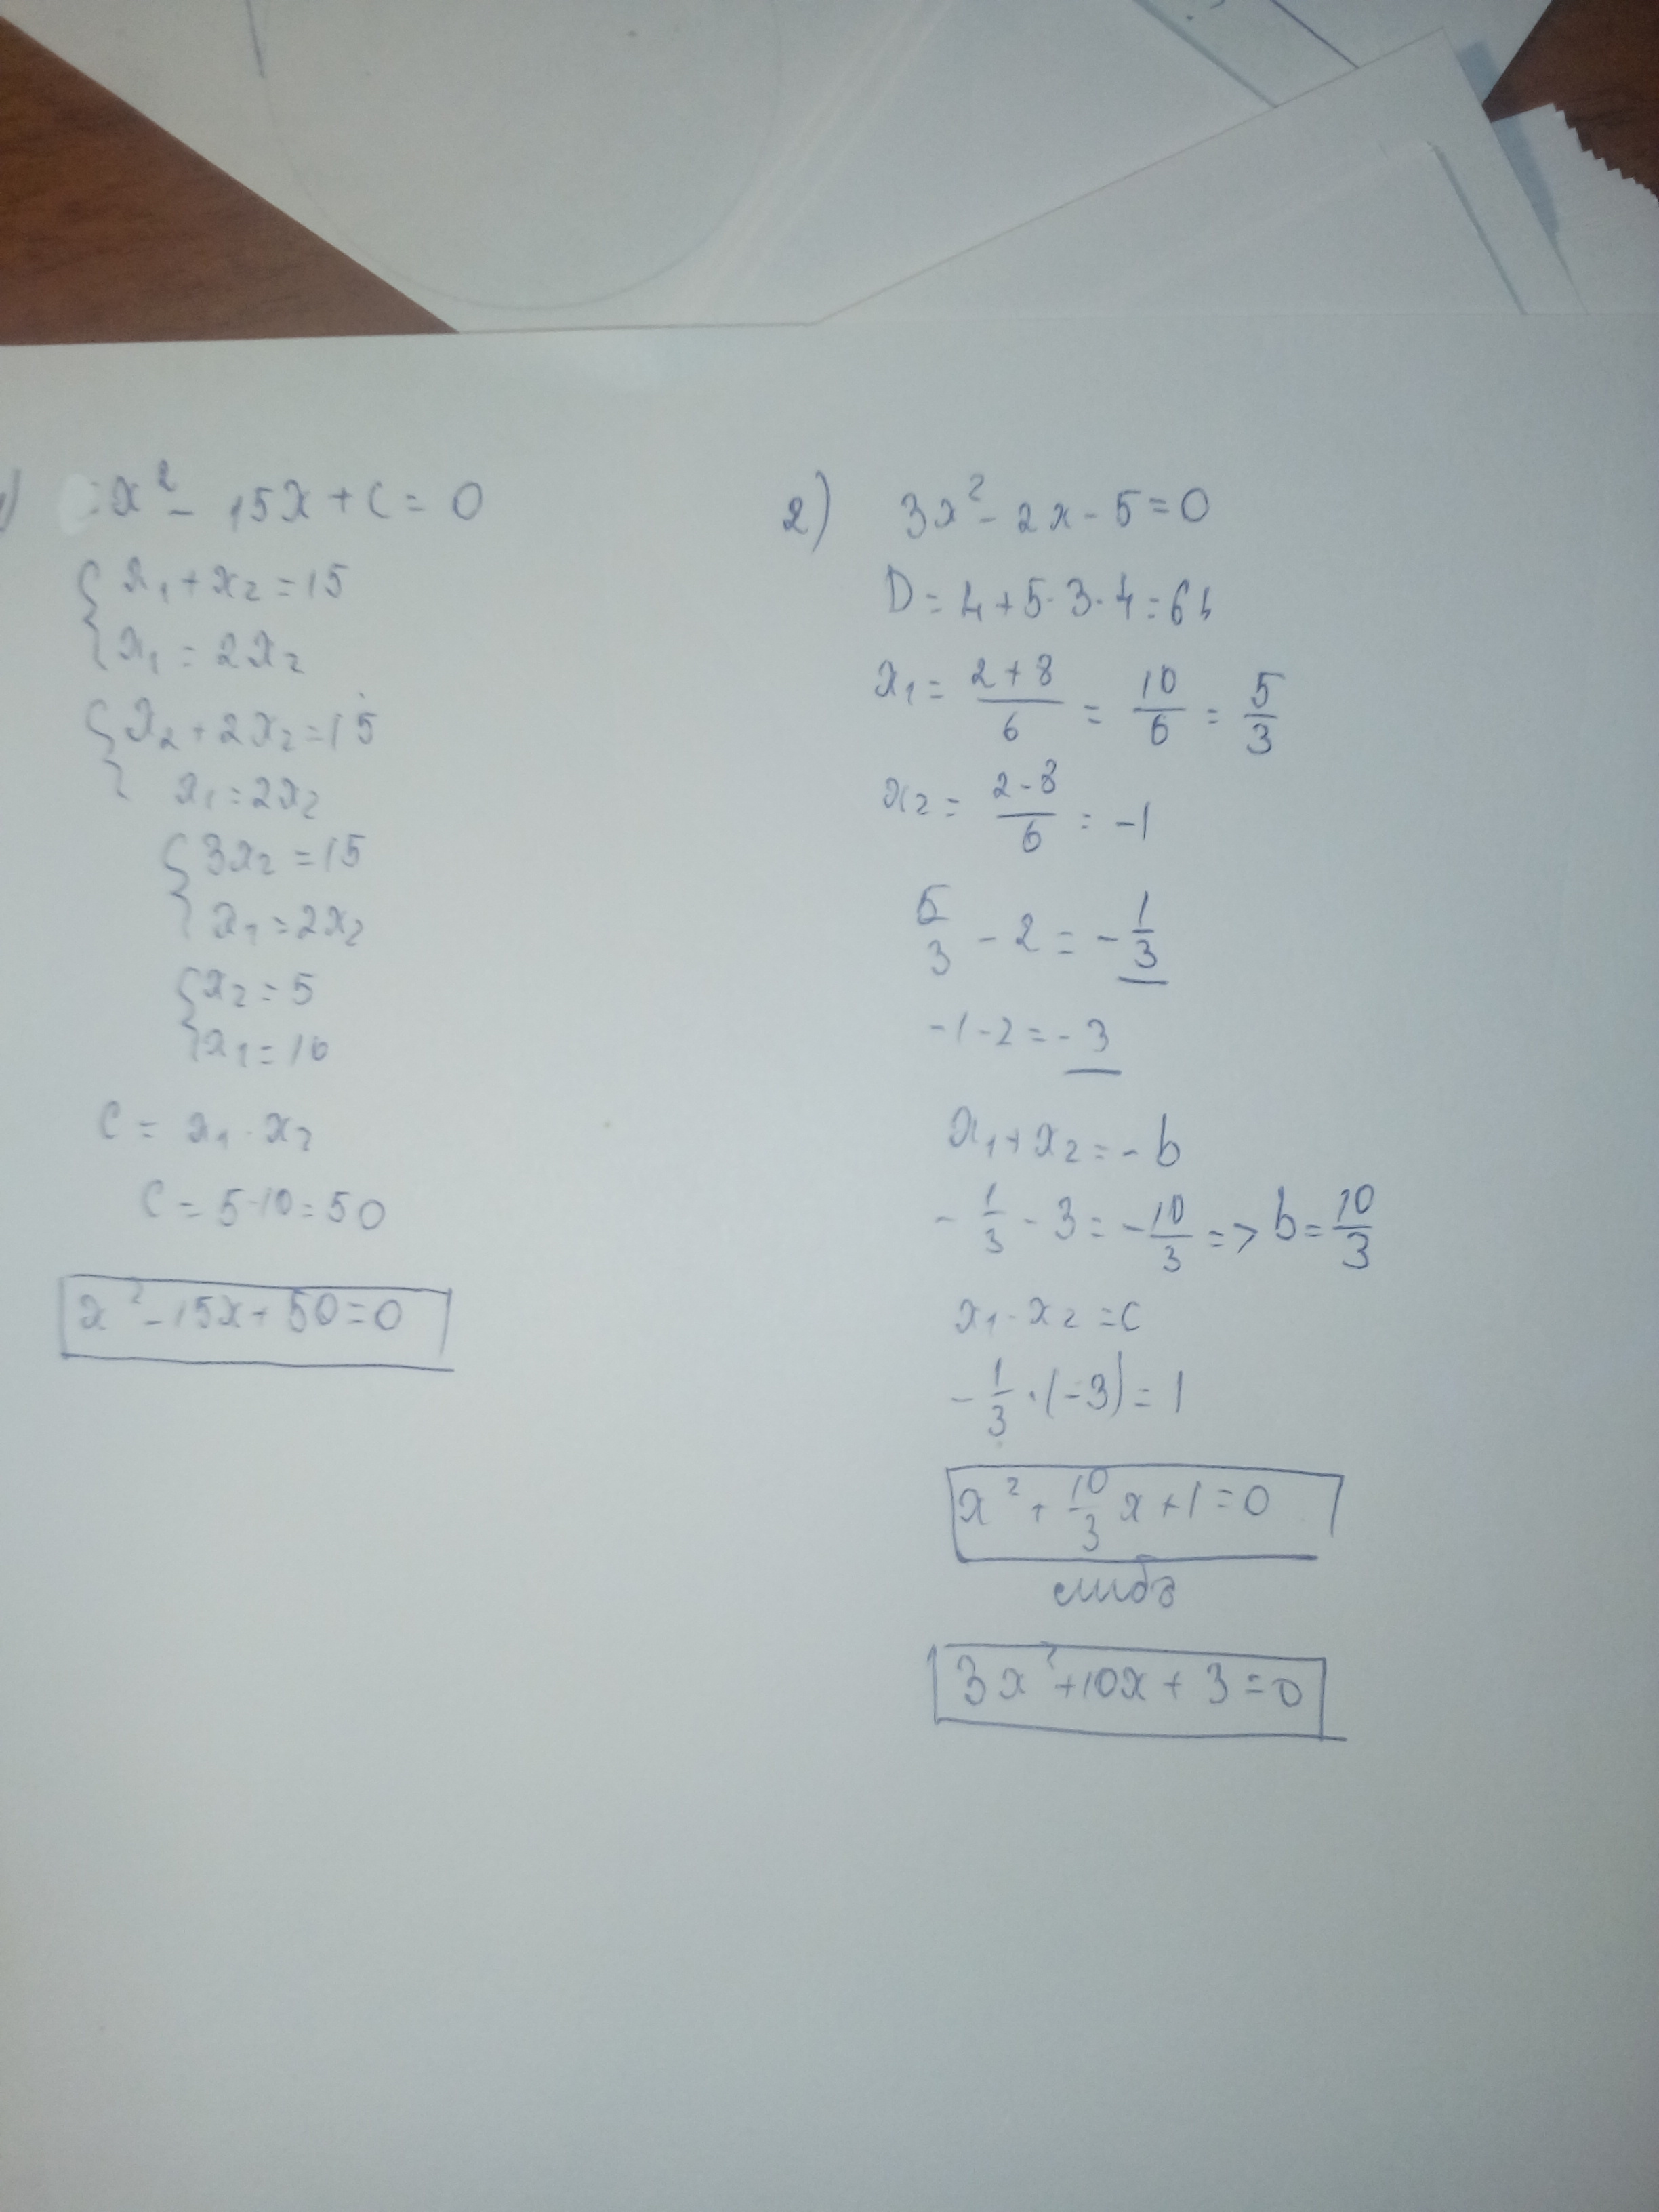 1) x² - 15x + c = 0
{ x₁ + x₂ = 15
x₁ = 2x₂
{ x₂ + 2x₂ = 15
x₁ = 2x₂
{ 3x₂ = 15
x₁ = 2x₂
{ x₂ = 5
x₁ = 10
c = x₁ · x₂
c = 5 · 10 = 50
x² - 15x + 50 = 0
2) 3x² - 2x - 5 = 0
D = 4 + 5 · 3 · 4 = 64
x₁ = (2+8)/6 = 10/6 = 5/3
x₂ = (2-8)/6 = -1
5/3 - 2 = -1/3
-1 - 2 = -3
x₁ + x₂ = -b
-1/3 - 3 = -10/3 => b = 10/3
x₁ · x₂ = c
-1/3 · (-3) = 1
x² + 10/3 x + 1 = 0
3x² + 10x + 3 = 0